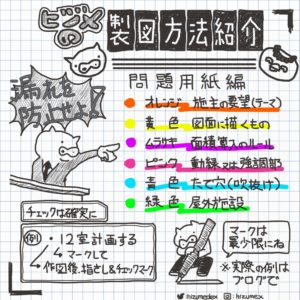 ヒヅメの
製図方法紹介
漏れを
防止せよ!
問題用紙編
オレンジ 施主の要望(テーマ)
黄色 図面に描くもの
ムラサキ 面積算入のルール
ピンク 動線又は強調部
青色 たて穴(吹抜け)
緑色 屋外施設
チェックは確実に
例 ・12室計画する
マークして
作図後、指さし&チェックマーク
マークは
最少限にね
※実際の例は
ブログで
hizumedex hizumex